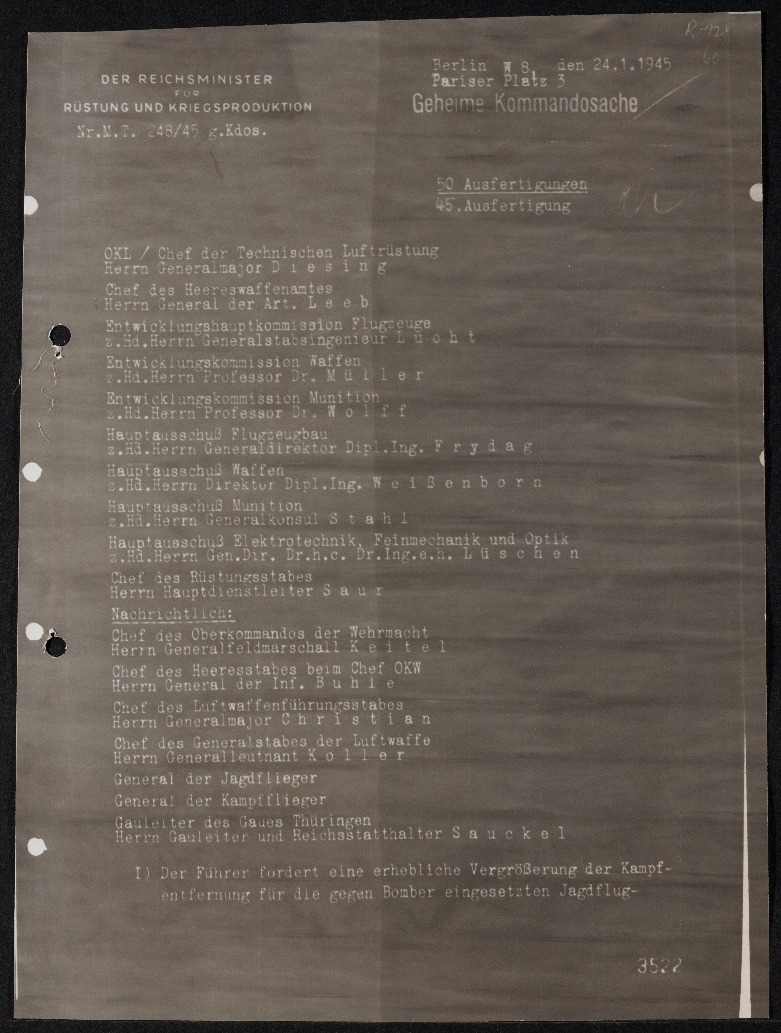 R-124
60
DER REICHSMINISTER
FÜR
RÜSTUNG UND KRIEGSPRODUKTION
Nr.M.T. 248/45 g.Kdos.
Berlin W 8, den 24.1.1945
Pariser Platz 3
Geheime Kommandosache
50 Ausfertigungen
45.Ausfertigung
OKL / Chef der Technischen Luftrüstung
Herrn Generalmajor D i e s i n g
Chef des Heereswaffenamtes
Herrn General der Art. L e e b
Entwicklungshauptkommission Flugzeuge
z.Hd.Herrn Generalstabsingenieur L u c h t
Entwicklungskommission Waffen
z.Hd.Herrn Professor Dr. M ü l l e r
Entwicklungskommission Munition
z.Hd.Herrn Professor Dr. W o l f f
Hauptausschuß Flugzeugbau
z.Hd.Herrn Generaldirektor Dipl.Ing. F r y d a g
Hauptausschuß Waffen
z.Hd.Herrn Direktor Dipl.Ing. W e i ß e n b o r n
Hauptausschuß Munition
z.Hd.Herrn Generalkonsul S t a h l
Hauptausschuß Elektrotechnik, Feinmechanik und Optik
z.Hd.Herrn Gen.Dir. Dr.h.c. Dr.Ing.e.h. L ü s c h e n
Chef des Rüstungsstabes
Herrn Hauptdienstleiter S a u r
Nachrichtlich:
Chef des Oberkommandos der Wehrmacht
Herrn Generalfeldmarschall K e i t e l
Chef des Heeresstabes beim Chef OKW
Herrn General der Inf. B u h l e
Chef des Luftwaffenführungsstabes
Herrn Generalmajor C h r i s t i a n
Chef des Generalstabes der Luftwaffe
Herrn Generalleutnant K o l l e r
General der Jagdflieger
General der Kampfflieger
Gauleiter des Gaues Thüringen
Herrn Gauleiter und Reichsstatthalter S a u c k e l
I) Der Führer fordert eine erhebliche Vergrößerung der Kampf-
entfernung für die gegen Bomber eingesetzten Jagdflug-
3522